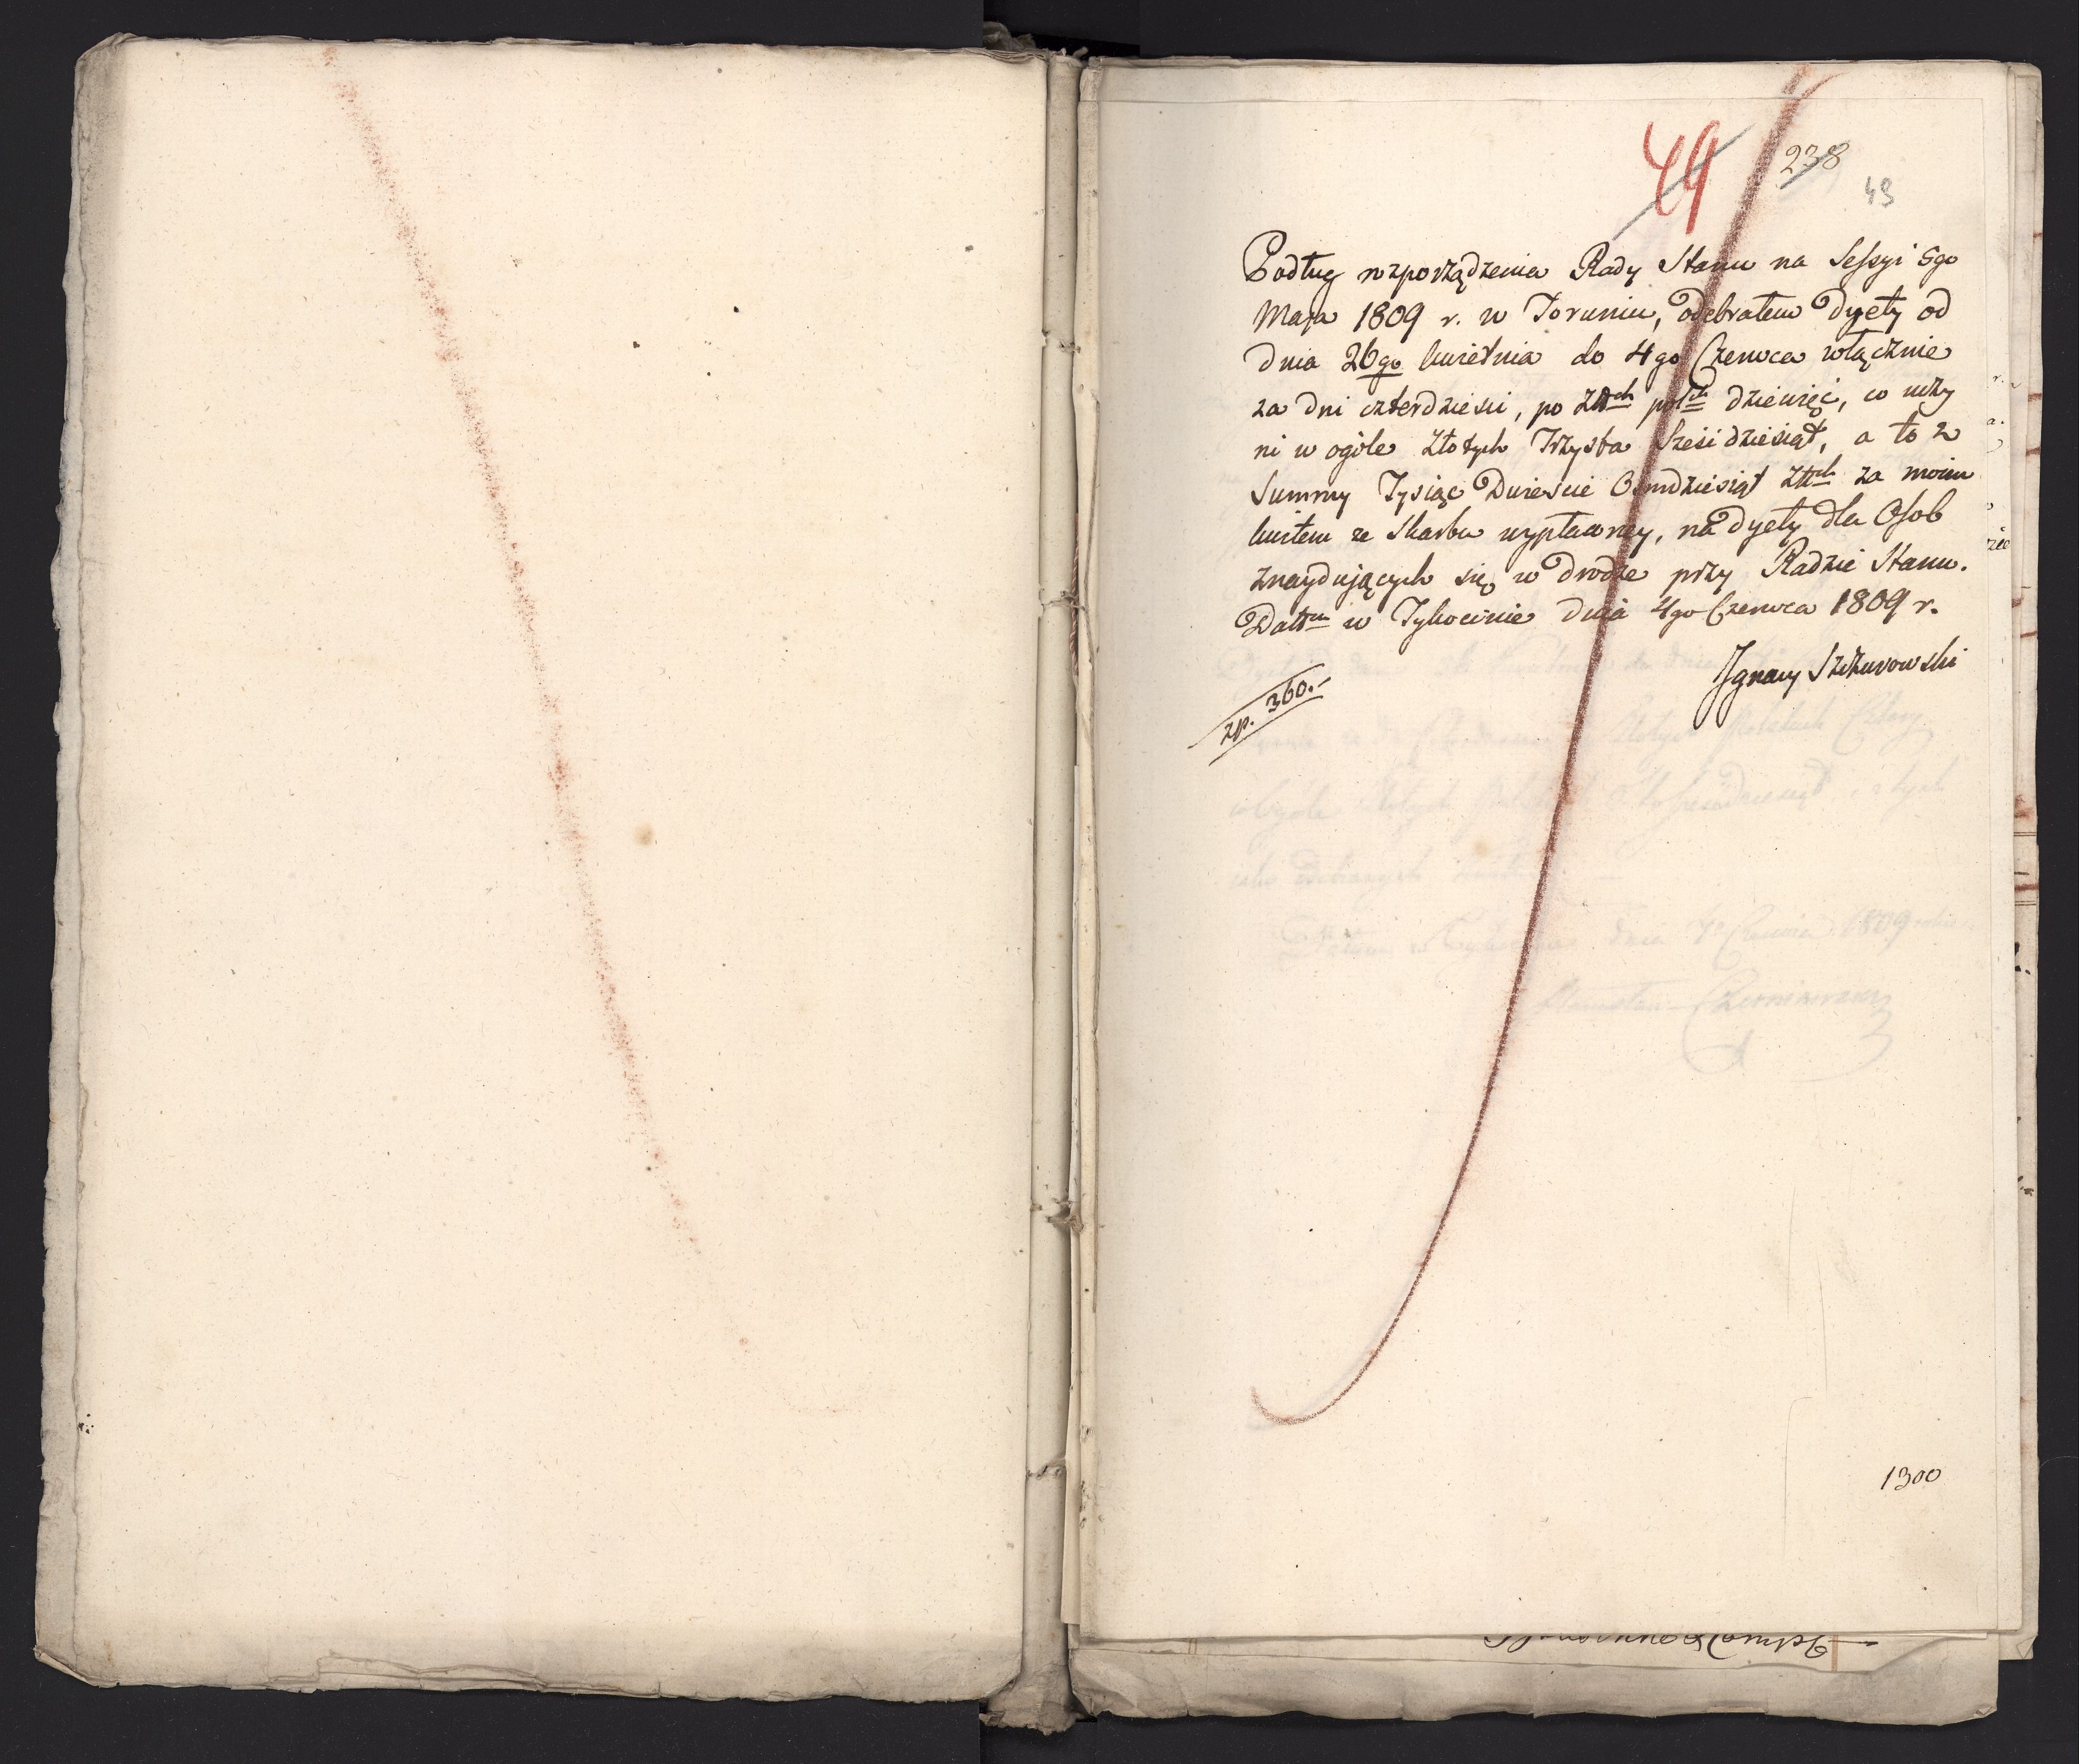 49
238
49
Podług rozporządzenia Rady Stanu na Sessyi 5go
Maja 1809 r. w Toruniu, odebrałem Dyety od
dnia 26go kwietnia do 4go Czerwca włącznie
za dni czterdzieści, po Złtch polsch dziewięć, co uczy
ni w ogóle złotych Trzysta Sześćdziesiąt, a to z
Summy Tysiąc Dwieście Osmdziesiąt Złtch za moim
kwitem ze Skarbu wypłaconey, na dyety dla Osob
znaydujących się w drodze przy Radzie Stanu.
Dattm w Tykocinie dnia 4go Czerwca 1809 r.
Ignacy Szczurowski
zp. 360.-
1300